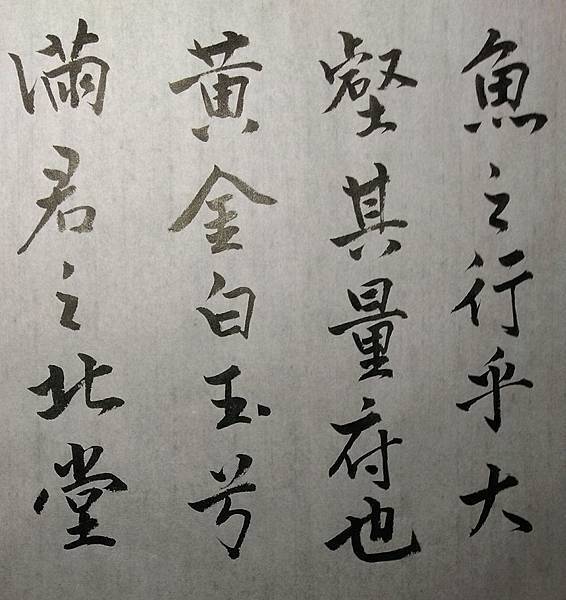 魚之行乎大
壑其量府也
黃金白玉兮
滿君之北堂